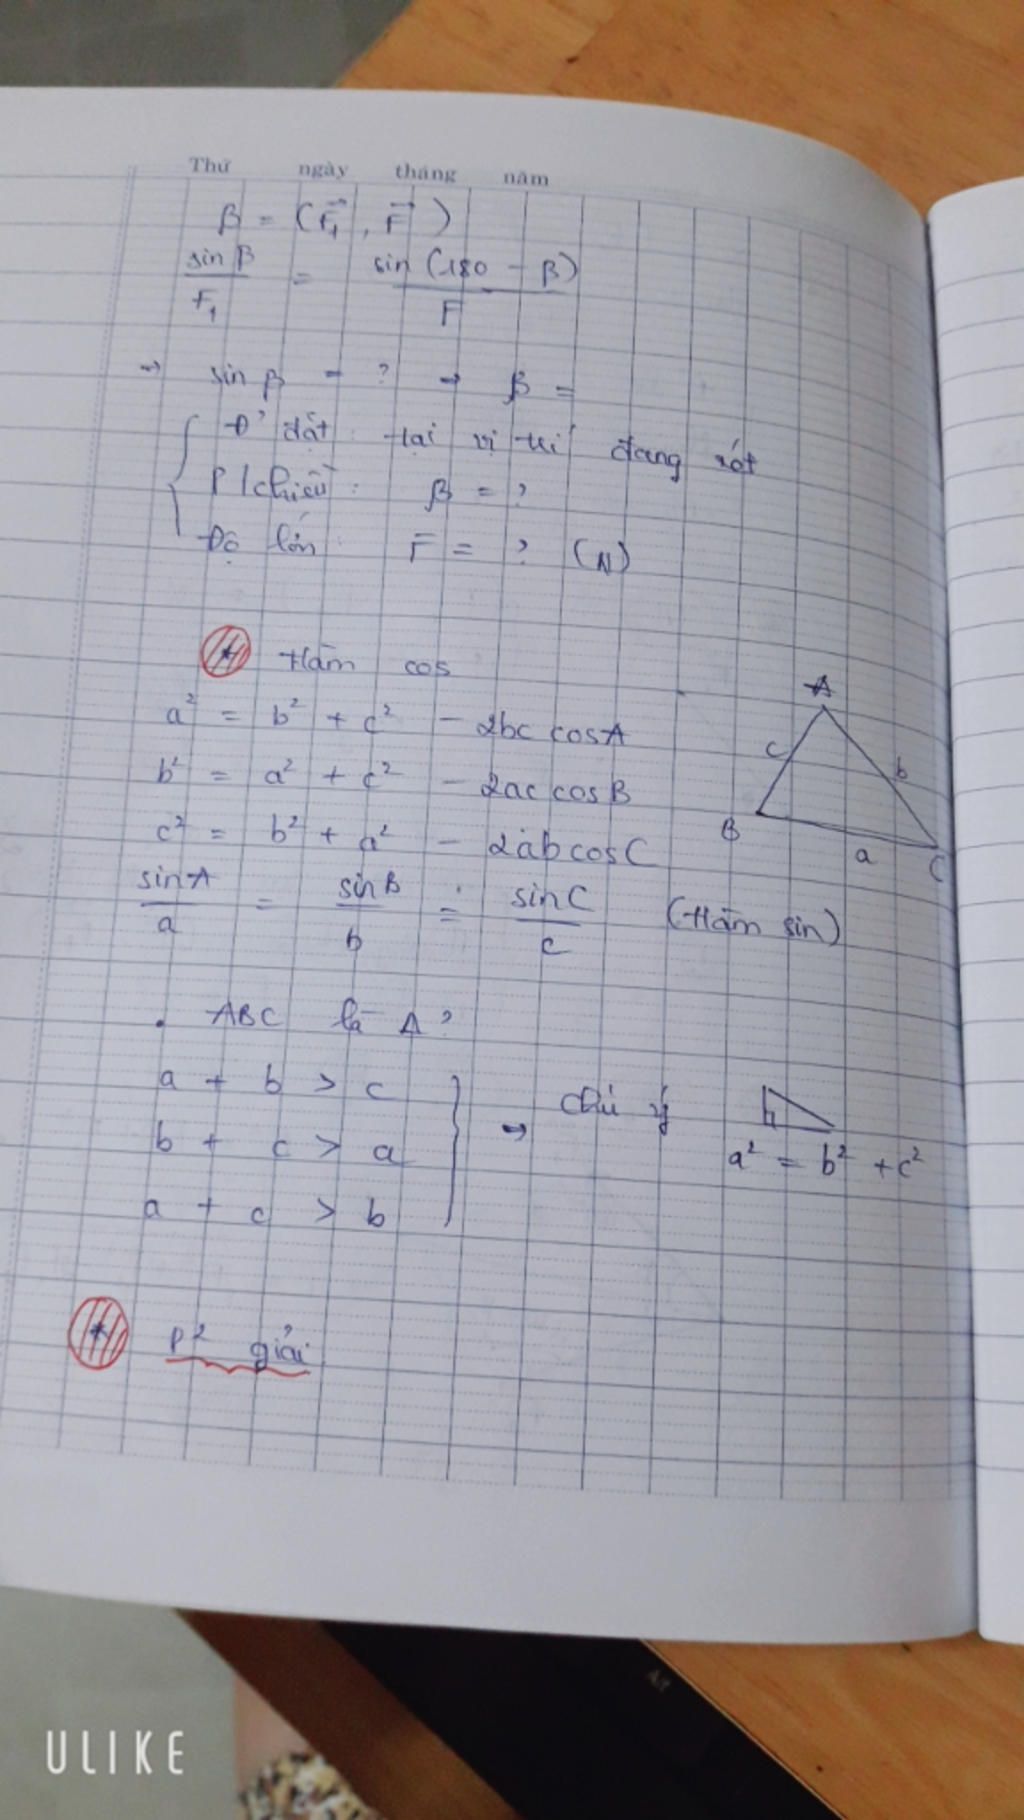 Thứ ngày tháng năm
β = (F₁→, F→)
sin β / F₁ = sin (180 - β) / F
→ sin β = ? → β =
Đ' đặt: tại vị trí đang xét
P/chiều: β = ?
Độ lớn: F = ? (N)
* Hàm cos
a² = b² + c² - 2bc cosA
b² = a² + c² - 2ac cosB
c² = b² + a² - 2ab cosC
A
c b
B a C
sinA / a = sinB / b = sinC / c (Hàm sin)
. ABC là Δ?
a + b > c
b + c > a
a + c > b
→ Chú ý
a² = b² + c²
* P² giải
A⫽
ULIKE